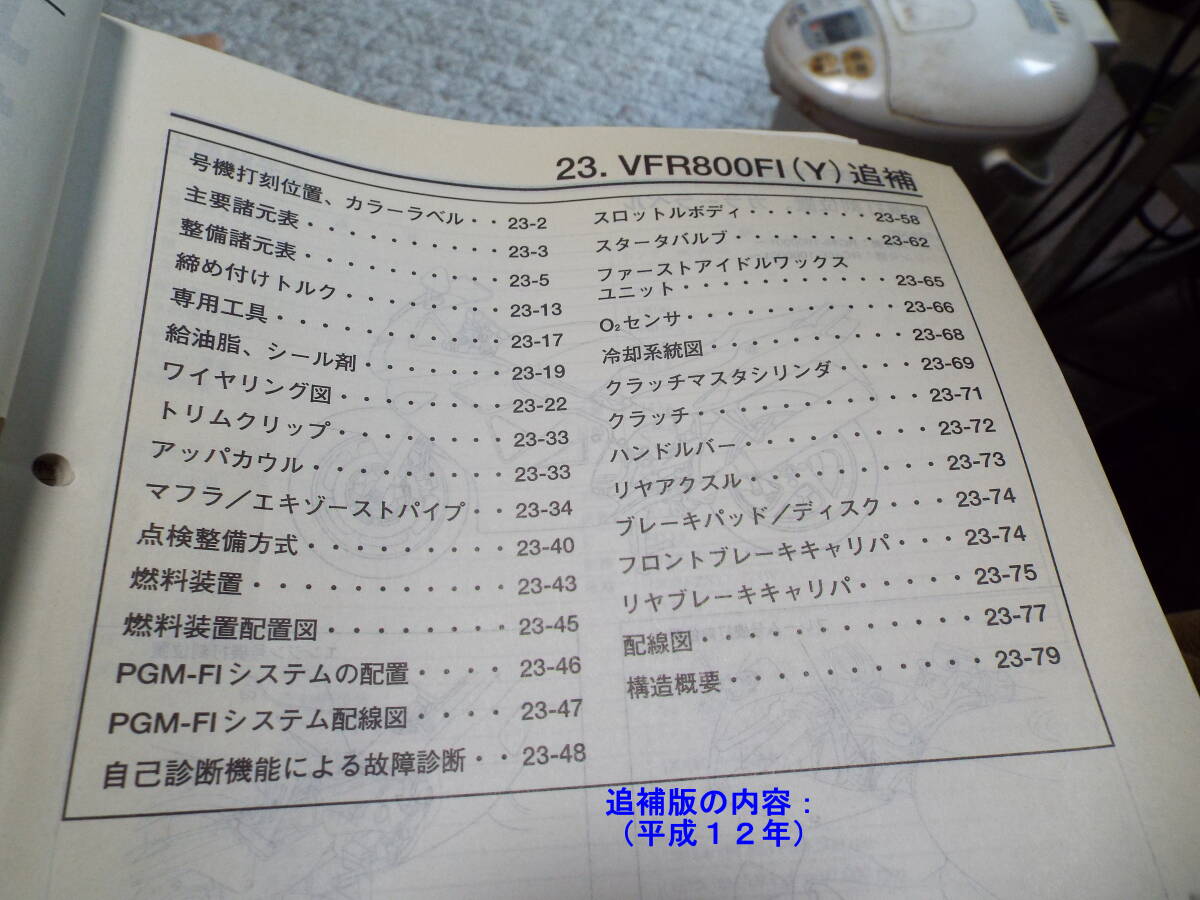 23. VFR800FI(Y)追補
号機打刻位置、カラーラベル・・23-2
主要諸元表・・・・・・・・・・23-3
整備諸元表・・・・・・・・・・23-5
締め付けトルク・・・・・・・・23-13
専用工具・・・・・・・・・・・23-17
給油脂、シール剤・・・・・・・23-19
ワイヤリング図・・・・・・・・23-22
トリムクリップ・・・・・・・・23-33
アッパカウル・・・・・・・・・23-33
マフラ/エキゾーストパイプ・・23-34
点検整備方式・・・・・・・・・23-40
燃料装置・・・・・・・・・・・23-43
燃料装置配置図・・・・・・・・23-45
PGM-FIシステムの配置・・・・23-46
PGM-FIシステム配線図・・・・23-47
自己診断機能による故障診断・・23-48
スロットルボディ・・・・・・・23-58
スタータバルブ・・・・・・・・23-62
ファーストアイドルワックス
ユニット・・・・・・・・・・・23-65
O₂センサ・・・・・・・・・・23-66
冷却系統図・・・・・・・・・・23-68
クラッチマスタシリンダ・・・・23-69
クラッチ・・・・・・・・・・・23-71
ハンドルバー・・・・・・・・・23-72
リヤアクスル・・・・・・・・・23-73
ブレーキパッド/ディスク・・・23-74
フロントブレーキキャリパ・・・23-74
リヤブレーキキャリパ・・・・・23-75
配線図・・・・・・・・・・・・23-77
構造概要・・・・・・・・・・・23-79
追補版の内容：
（平成１２年）